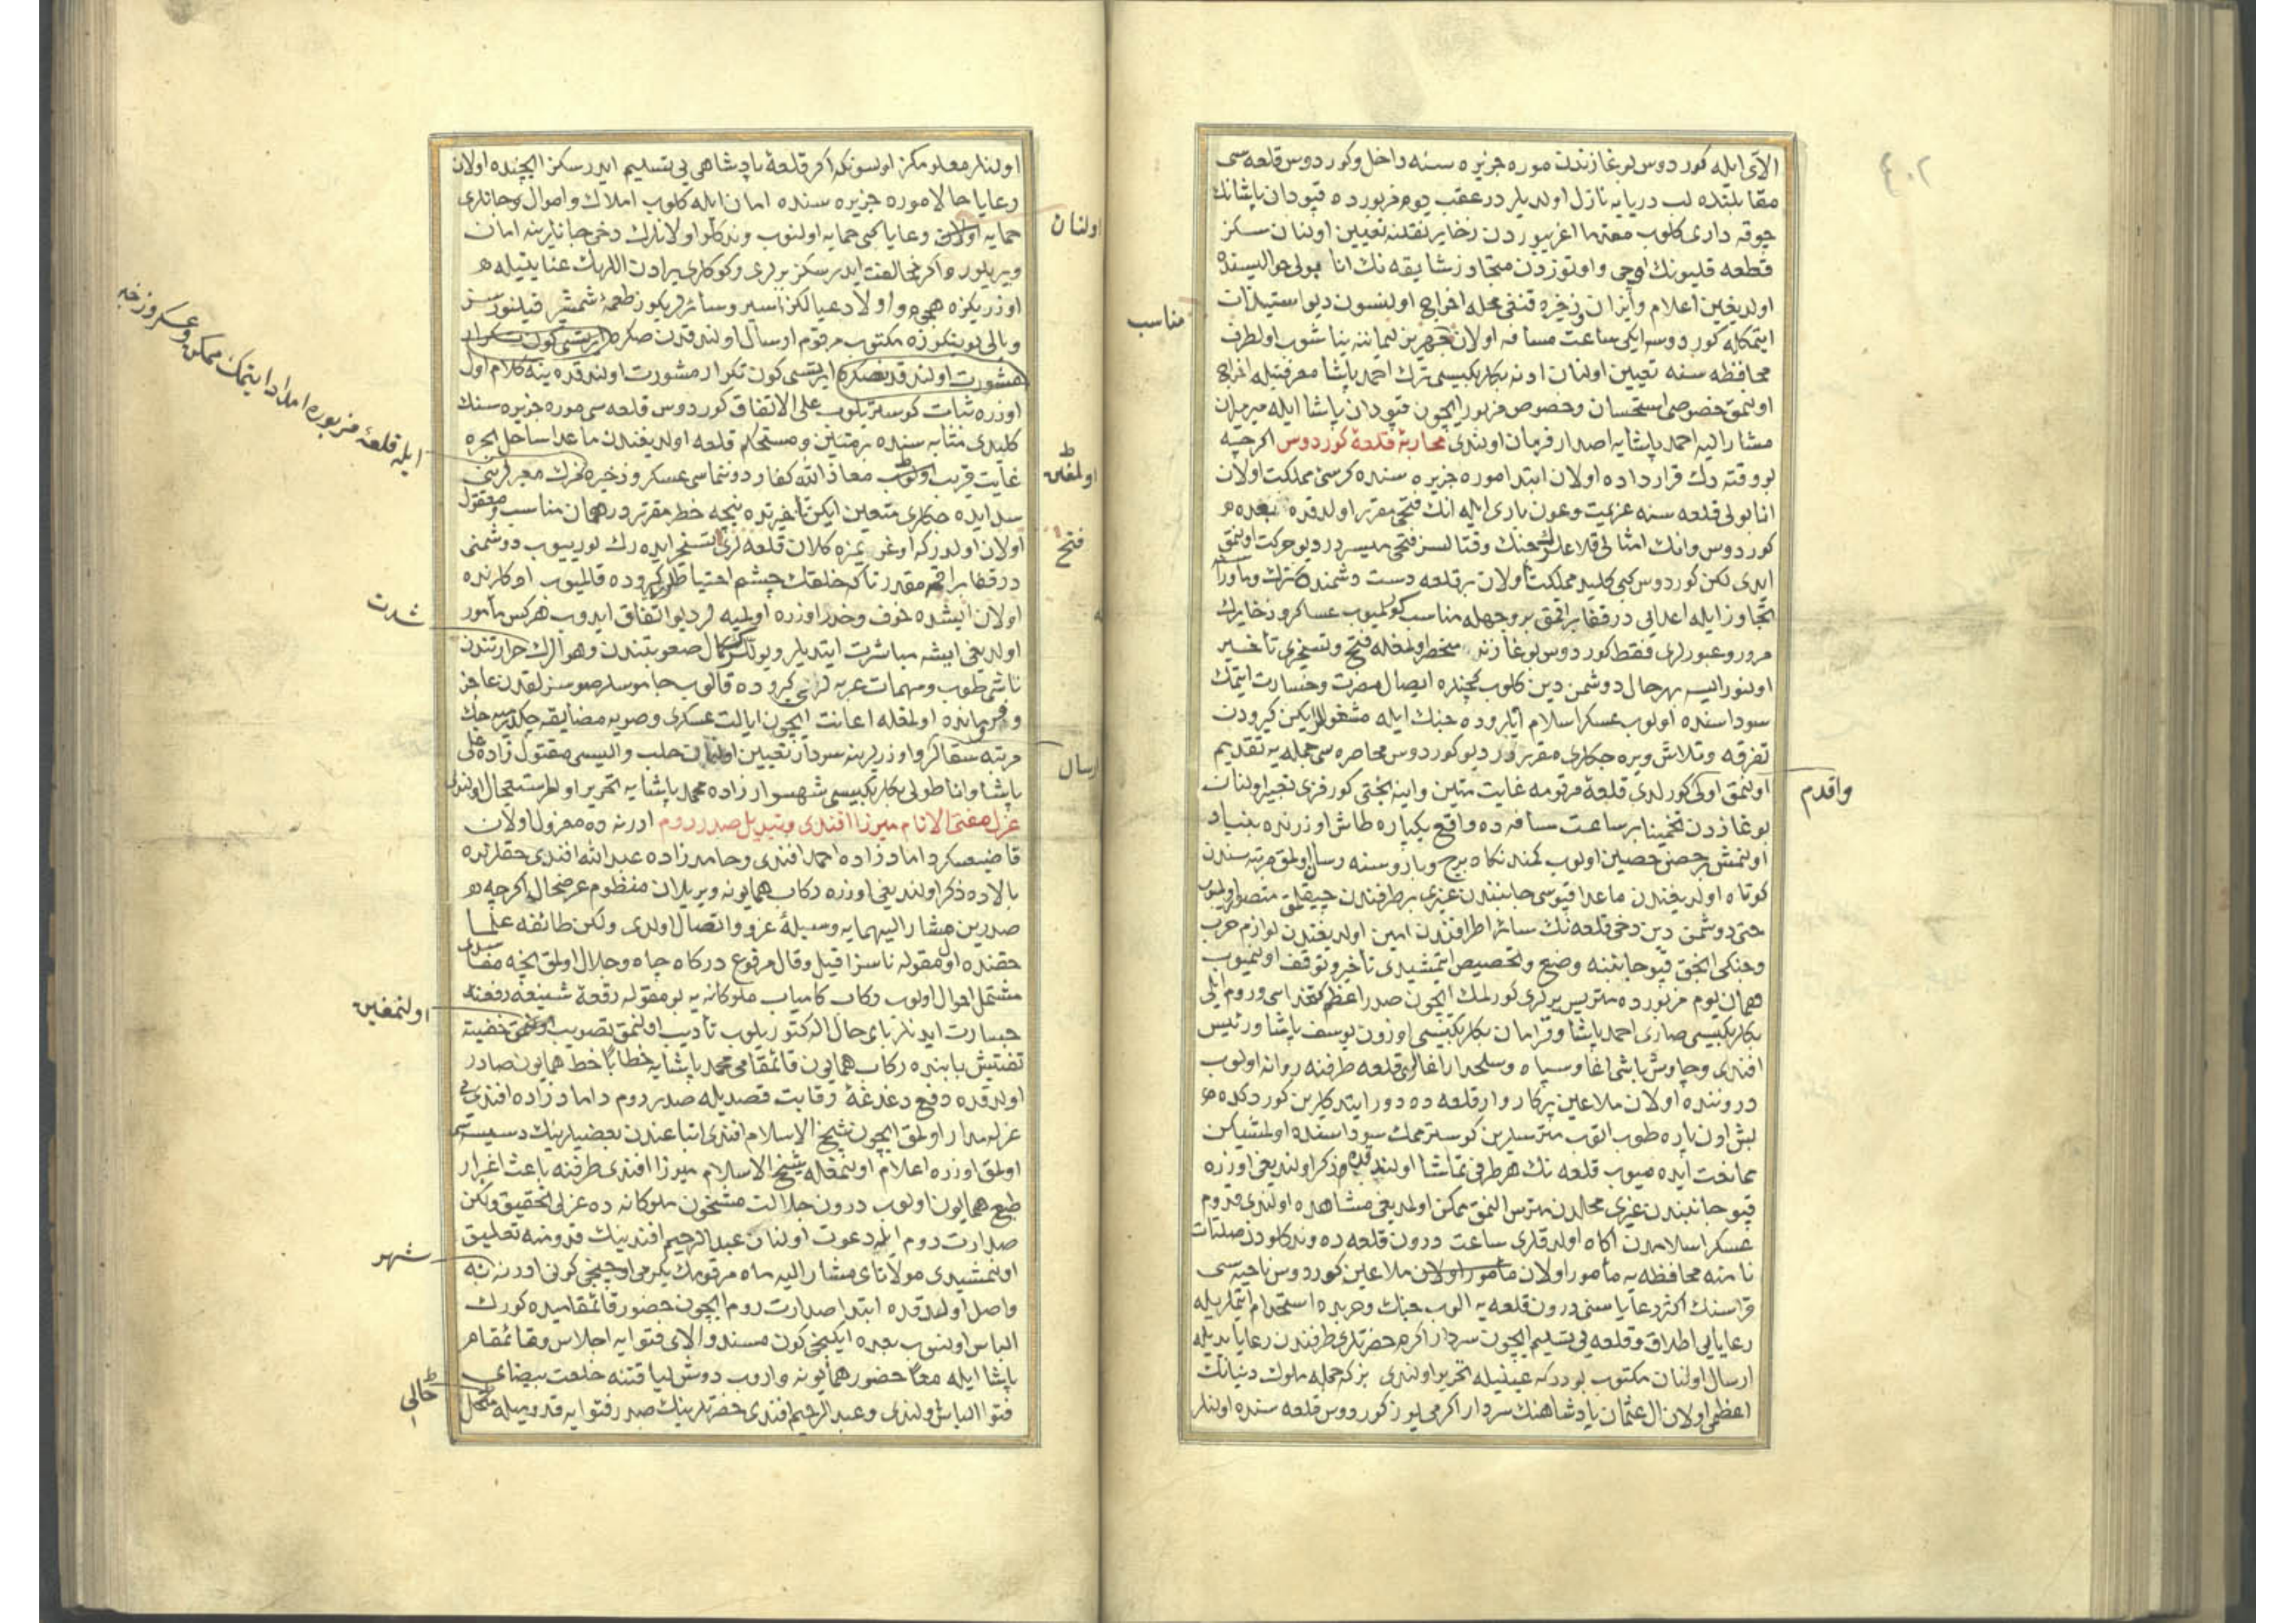 ٤٠٢
الآی ایله كوردوس بوغازندن موره جزیره سنه داخل و كوردوس قلعه سی
مقابلتنده لب دریایه نازل اولدیلر در عقب یوم مزبورده قپودان پاشانك
چوقه داری كلوب مقدما اغریبوزدن ذخایر نقلنه تعیین اولنان سكز
قطعه قلیونك اوچی و اوتوزدن متجاوز شایقه نك انابولی حوالیسنده
اولدیغین اعلام و ذخیره قنغی محله اخراج اولنسون دیو استیذان
ایتمكله كوردوسه ایكی ساعت مسافه اولان لیماننه یناشوب اولطرف
مناسب
محافظه سنه تعیین اولنان ادنه بكلربكیسی ترك احمد پاشا معرفتیله اخراج
اولنمق خصوصی استحسان و خصوص مزبور ایچون قپودان پاشا ایله میرمیران
مشار الیه احمد پاشایه اصدار فرمان اولندی محاربهٔ قلعهٔ كوردوس اكرچه
بو وقته دك قرارداده اولان ابتدا موره جزیره سنده كرسئ مملكت اولان
انابولی قلعه سنه عزیمت و عون باری ایله انك فتحی مقرر اولدقده بعده
كوردوس و انك امثالی قلاعك جنك و قتالسز فتحی میسردر دیو حركت اولنمق
ایدی لكن كوردوس كبی كلید مملكت اولان بر قلعه دست دشمنده ترك و ماورأ
تجاوز ایله اعدایی در قفا براقمق بر وجهله مناسب كورلمیوب عساكر و ذخایرك
مرور و عبورلری فقط كوردوس بوغازنه منحصر اولمغله فتح و تسخیری تأخیر
اولنور ایسه بهر حال دوشمن دین كلوب ایچنده ایصال مضرت و خسارت ایتمك
سوداسنده اولوب عسكر اسلام ایلروده جنك ایله مشغوللر ایكن كیرودن
تفرقه و تلاش ویره جكلری مقرردر دیو كوردوس محاصره سی جمله یه تقدیم
واقدم
اولنمق اولی كورلدی قلعهٔ مرقومه غایت متین و اینه بختی كورفزی تعبیر اولنان
بوغازدن تخمینا بر ساعت مسافه ده واقع یكپاره طاش اوزرنده بنیاد
اولنمش بر حصن حصین اولوب كمند نكاه برج و باروسنه رسا اولمق مرتبه سندن
كوتاه اولدیغندن ماعدا قپوسی جانبندن غیری بر طرفندن چیقلمق متصور اولمیوب
حتی دوشمن دین دخی قلعه نك سائر اطرافندن امین اولدیغندن لوازم حرب
و جنكی انجق قپو جانبنه وضع و تخصیص ایتمشیدی تأخیر و توقف اولنمیوب
همان یوم مزبورده متریس یرلری كورلمك ایچون صدر اعظم كتخداسی و روم ایلی
بكلربكیسی صاری احمد پاشا و قرامان بكلربكیسی اوزون یوسف پاشا و رئیس
افندی و چاوش باشی اغا و سپاه و سلحدار اغالری قلعه طرفنه روانه اولوب
دروننده اولان ملاعین پركاروار قلعه ده دور ایتدكلرین كوردكده
بش اون پاره طوب اتوب متریسلرین كوسترمك سوداسنده اولمشیكن
ممانعت ایده میوب قلعه نك هر طرفی تماشا اولندقده ذكر اولندیغی اوزره
قپو جانبندن غیری محللردن متریس النمق ممكن اولمدیغی مشاهده اولندی قدوم
عسكر اسلامدن آكاه اولدقلری ساعت درون قلعه ده ونديكلودن
نامنه محافظه یه مأمور اولان ملاعین كوردوس ناحیه سی
قراسنك اكثر رعایاسنی درون قلعه یه الوب جنك و حربده استخدام ایتملریله
رعایایی اطلاق و قلعه یی تسلیم ایچون سردار اكرم حضرتلری طرفندن رعایا یدیله
ارسال اولنان مكتوب بودر كه عینیله تحریر اولندی بزكه جمله ملوك دنیانك
اعظمی اولان ال عثمان پادشاهنك سردار اكرمی یوز كوردوس قلعه سنده اولنلر
اولنلر معلومكز اولسونكه اكر قلعهٔ پادشاهی یی تسلیم ایدرسكز ایچنده اولان
رعایا حالا موره جزیره سنده امان ایله كلوب املاك و اموال و جانلری
حمایه اولان رعایا كبی حمایه اولنوب وندیكلو اولانلرك دخی جانلرینه امان
اولنان
ویریلور و اكر مخالفت ایدرسكز یرلری و كوكلری یرادن اللهك عنایتیله
اوزریكزه هجوم و اولاد و عیالكز اسیر و سائرلریكز طعمهٔ شمشیر قیلنورسز
و بالی بونكورده مكتوب مرقوم ارسال اولندقدن صكره ایرتسی كون تكرار
مشورت اولندقدنصكره ایرتسی كون تكرار مشورت اولندقده ینه كلام اول
اوزره ثبات كوستریلوب علی الاتفاق كوردوس قلعه سی موره جزیره سنك
كلیدی مثابه سنده بر متین و مستحكم قلعه اولدیغندن ماعدا ساحل بحره
غایت قریب اولوب معاذ الله كفار دوننماسی عسكر و ذخیره نزك معبرلرینی
اولمغین
ایله قلعهٔ مزبوره امداد ایتمك ممكن و عسكر و ذخیره
سد ایده جكلری متعین ایكن تأخیرنده نیجه خطر مقرردر همان مناسب و معقول
اولان اولدر كه اوغریمزه كلان قلعه لری تسخیر ایده رك یورییوب دوشمنی
فتح
در قفا براقمه مقدر تا كه خلقك چشم احتیاطلری كیروده قالمیوب اوكلرنده
اولان ایشده خوف و خدر اوزره اولمیه لر دیو اتفاق ایدوب هر كس مأمور
شدت
اولدیغی ایشه مباشرت ایتدیلر و یوللرك كمال صعوبتندن و هوالرك حرارتندن
ناشی طوب و مهمات عربه لری كیروده قالوب جاموسلر صوسزلقدن عاجز
و فرومانده اولمغله اعانت ایچون ایالت عسكری و صویه مضایقه چكلمیه جك
مرتبه سقالر و اوزرلرینه سردار تعیین اولنان حلب والیسی مقتول زاده علی
ارسال
پاشا و اناطولی بكلربكیسی شهسوار زاده محمد پاشایه تحریر اولنوب استعجال اولندی
عزل مفتی الانام میرزا افندی و تبدیل صدر روم ادرنه ده معزول اولان
قاضیعسكر داماد زاده احمد افندی و حامد زاده عبد الله افندی حقلرنده
بالاده ذكر اولندیغی اوزره ركاب همایونه ویریلان منظوم عرضحال اكرچه
صدرین مشار الیهمایه وسیلهٔ عز و اتصال اولدی ولكن طائفهٔ علما
حقنده اول مقوله ناسزا قیل و قال مرفوع دركاه جاه و جلال اولمق نیجه مفاسدی
مشتمل احوال اولوب ركاب كامیاب ملوكانه یه بو مقوله رقعهٔ شنیعه رفعنه
اولنمغین
جسارت ایدنلر بای حال اله كتوریلوب تأدیب اولنمق تصویب خفیة
تفتیش بابنده ركاب همایون قائمقامی محمد پاشایه خطاباً خط همایون صادر
اولدقده دفع دغدغهٔ رقابت قصدیله صدر روم داماد زاده افندی
عزله مدار اولمق ایچون شیخ الاسلام افندی اتباعندن بعضیلرینك دسیسه سی
اولمق اوزره اعلام اولنمغله شیخ الاسلام میرزا افندی طرفنه باعث اغبرار
طبع همایون اولوب درون جلالت مشحون ملوكانه ده عزلی تحقیق ولكن
صدارت روم ایله دعوت اولنان عبد الرحیم افندینك قدومنه تعلیق
شهر
اولنمشیدی مولانای مشار الیه ماه مرقومك یكرمی اوچنجی كونی ادرنه یه
واصل اولدقده ابتدا صدارت روم ایچون حضور قائمقامیده كورك
الباس اولنوب بعده ایكنجی كون مسند والای فتوایه اجلاس و قائمقام
پاشا ایله معاً حضور همایونه واروب دوش لیاقتنه خلعت بیضای
خالی
فتوا الباس اولندی و عبد الرحیم افندی حضرتلرینك صدر فتوایه قدومیله